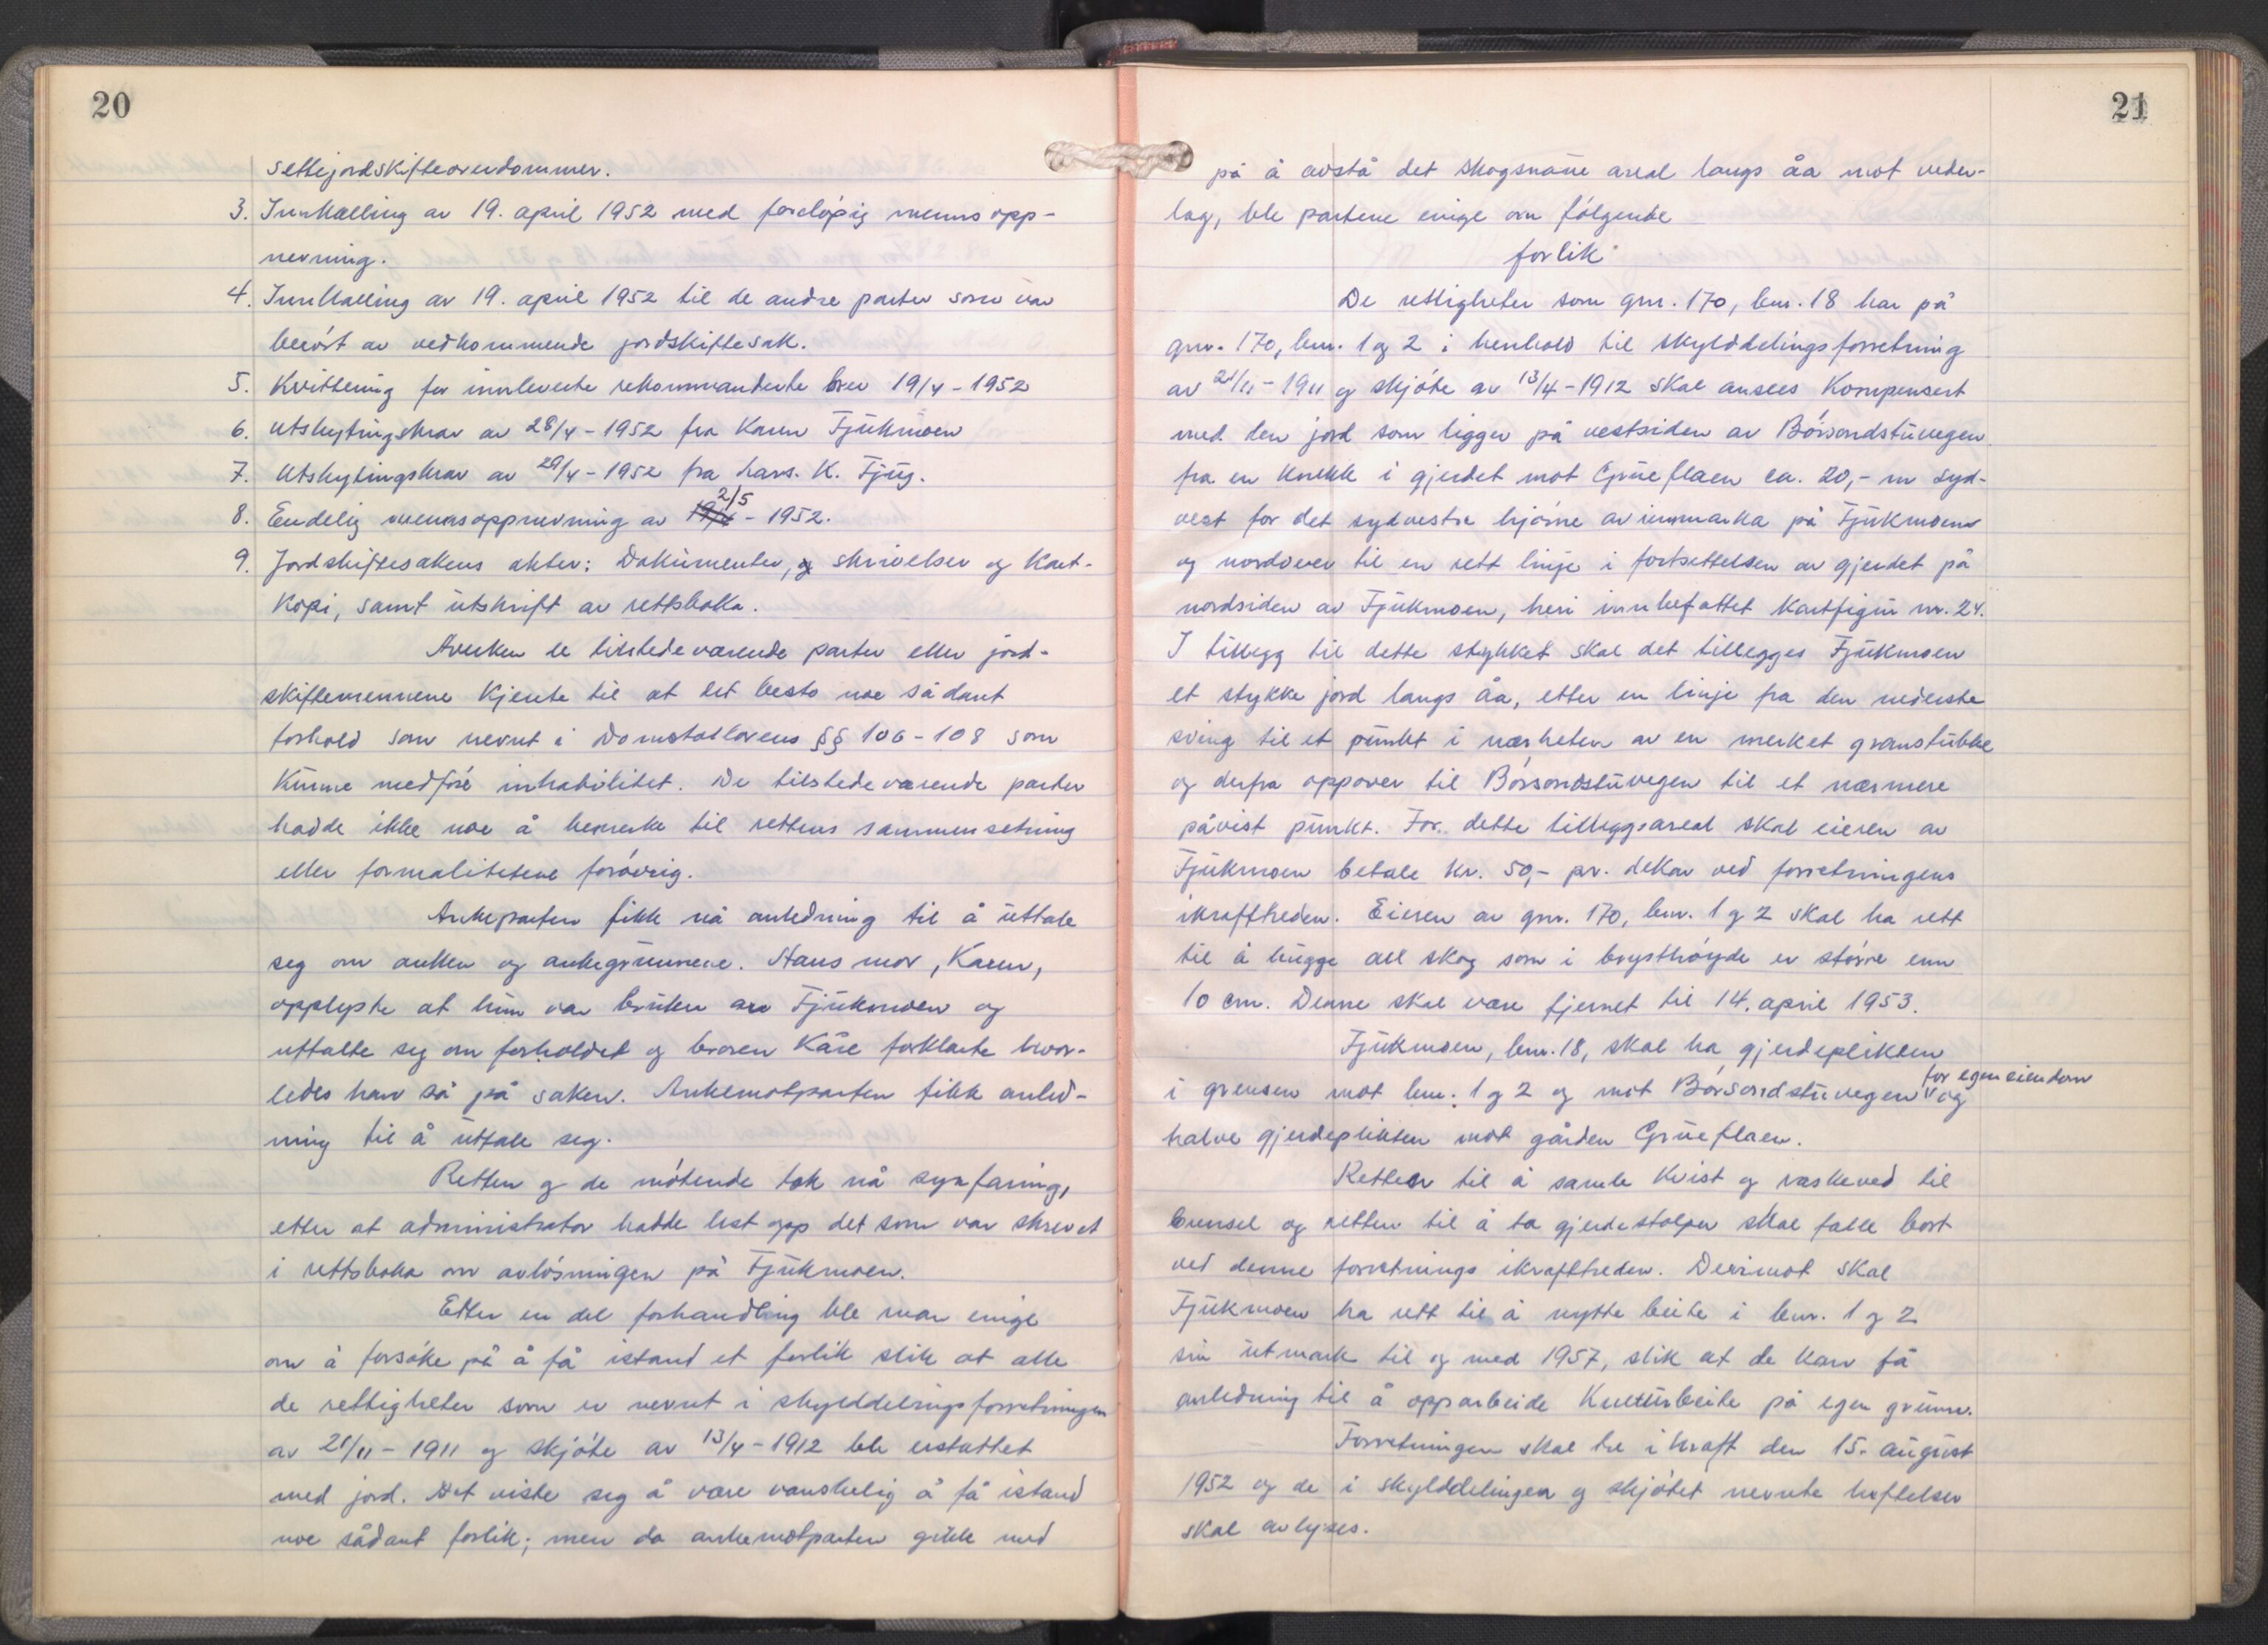 20
settejordskifteoverdommer.
3. Innkalling av 19. april 1952 med foreløpig menns opp-
nevning.
4. Innkalling av 19. april 1952 til de andre parter som var
berørt av vedkommende jordskiftesak.
5. Kvittering for innleverte rekommanderte brev 19/4-1952
6. Utskytingskrav av 28/4-1952 fra Karen Fjukmoen
7. Utskytingskrav av 29/4-1952 fra Lars. K. Fjug.
8. Endelig mennsoppnevning av 2/5 - 1952.
9. Jordskiftesakens akter: Dokumenter, skrivelser og Kart-
Kopi, samt utskrift av rettsboka.
Hverken de tilstedeværende parter eller jord-
skiftemennene kjente til at det besto noe sådant
forhold som nevnt i Domstollovens §§ 106-108 som
kunne medføre inhabilitet. De tilstedeværende parter
hadde ikke noe å bemerke til rettens sammensetning
eller formalitetene forøvrig.
Ankeparten fikk nå anledning til å uttale
seg om anken og ankegrunnene. Hans mor, Karen,
opplyste at hun var bruker av Fjukmoen og
uttalte seg om forholdet og broren Kåre forklarte hvor-
ledes han så på saken. Ankemotparten fikk anled-
ning til å uttale seg.
Retten og de møtende tok nå synfaring,
etter at administrator hadde lest opp det som var skrevet
i rettsboka om avløsningen på Fjukmoen.
Etter en del forhandling ble man enige
om å forsøke på å få istand et forlik slik at alle
de rettigheter som er nevnt i skylddelingsforretningen
av 21/11-1911 og skjøte av 13/4-1912 ble erstattet
med jord. Det viste seg å være vanskelig å få istand
noe sådant forlik; men da ankemotparten gikk med
21
på å avstå det skogsnaue areal langs åa mot veder-
lag, ble partene enige om følgende
forlik
De rettigheter som gnr. 170, bnr. 18 har på
gnr. 170, bnr. 1 og 2 i henhold til skylddelingsforretning
av 21/11-1911 og skjøte av 13/4-1912 skal ansees Kompensert
med den jord som ligger på vestsiden av Børsondstuvegen
fra en knekk i gjerdet mot Grueflaen ca. 20,- m syd-
vest for det sydvestre hjørne av innmarka på Fjukmoen
og nordover til en rett linje i fortsettelsen av gjerdet på
nordsiden av Fjukmoen, heri innbefattet Kartfigur nr. 24.
I tillegg til dette stykket skal det tillegges Fjukmoen
et stykke jord langs åa, etter en linje fra den nederste
sving til et punkt i nærheten av en merket granstubbe
og derfra oppover til Børsondstuvegen til et nærmere
påvist punkt. For dette tilleggsareal skal eieren av
Fjukmoen betale kr. 50,- pr. dekar ved forretningens
ikrafttreden. Eieren av gnr. 170, bnr. 1 og 2 skal ha rett
til å hugge all skog som i brysthøyde er større enn
10 cm. Denne skal være fjernet til 14. april 1953.
Fjukmoen, bnr. 18, skal ha gjerdeplikten
i grensen mot bnr. 1 og 2 og mot Børsondstuvegen for egen eiendom og
halve gjerdeplikten mot gården Grueflaen.
Retten til å samle Kvist og raskeved til
brensel og retten til å ta gjerdestolper skal falle bort
ved denne forretnings ikrafttreden. Derimot skal
Fjukmoen ha rett til å nytte beite i bnr. 1 og 2
sin utmark til og med 1957, slik at de kan få
anledning til å opparbeide Kulturbeite på egen grunn.
Forretningen skal tre i kraft den 15. august
1952 og de i skylddelingen og skjøtet nevnte heftelser
skal avlyses.